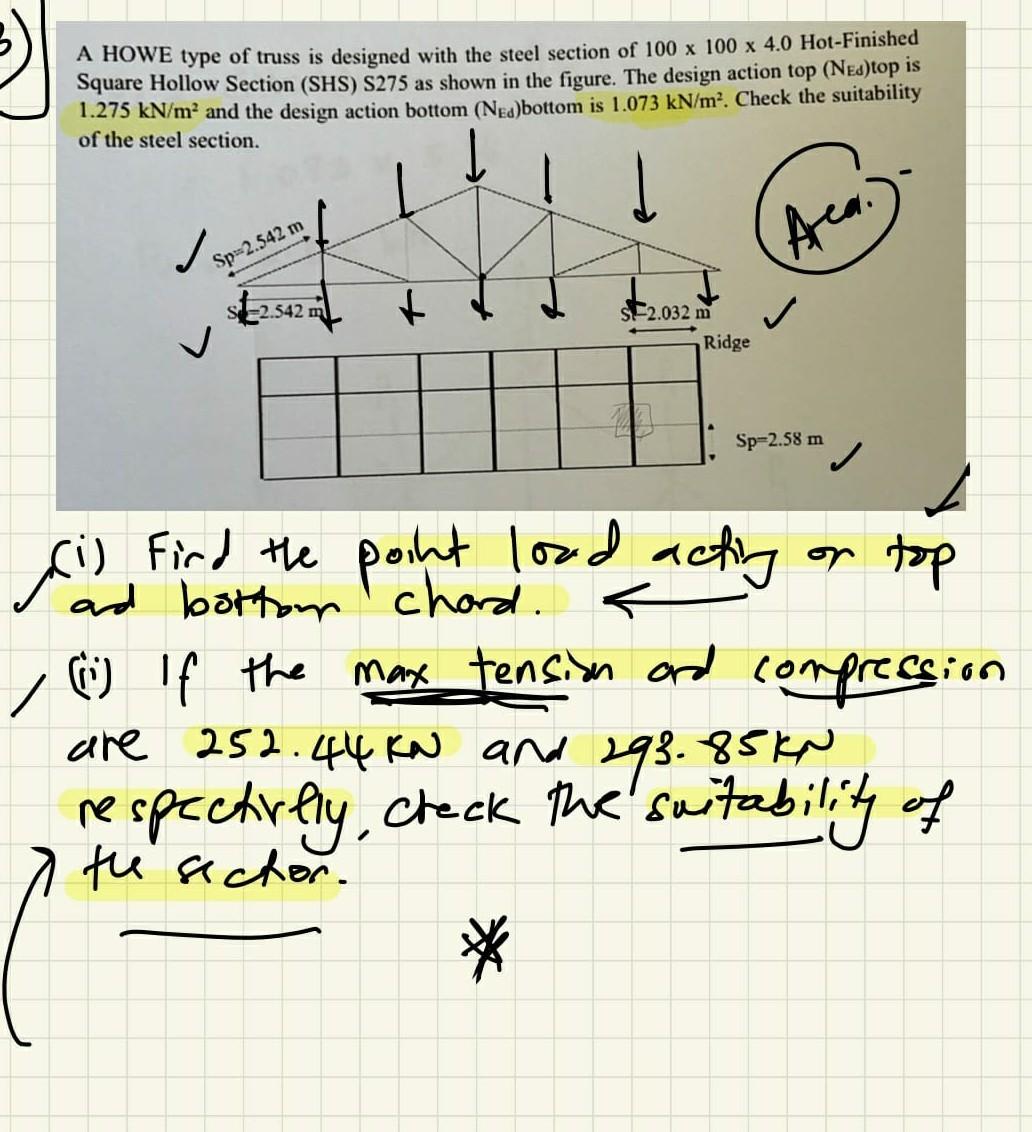 A HOWE type of truss is designed with the steel section of 100 x 100 x 4.0 Hot-Finished
Square Hollow Section (SHS) S275 as shown in the figure. The design action top (NEd)top is
1.275 kN/m² and the design action bottom (NEd)bottom is 1.073 kN/m². Check the suitability
of the steel section.
Sp=2.542 m
Area.
=2.542 m
=2.032 m
Ridge
Sp=2.58 m
(i) Find the point load acting on top
and bottom chord.
(ii) If the max tension and compression
are 252.44 KN and 293.85KN
respectively, check the suitability of
the section.